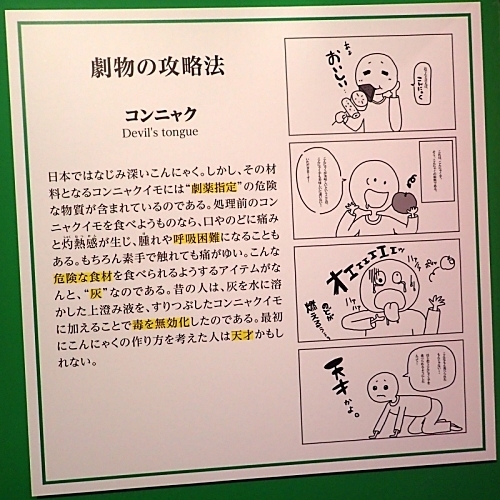 劇物の攻略法
コンニャク
Devil's tongue
日本ではなじみ深いこんにゃく。しかし、その材
料となるコンニャクイモには“劇薬指定”の危険
な物質が含まれているのである。処理前のコン
ニャクイモを食べようものなら、口やのどに痛み
と灼熱感が生じ、腫れや呼吸困難になることも
ある。もちろん素手で触れても痛がゆい。こんな
危険な食材を食べられるようするアイテムがな
んと、“灰”なのである。昔の人は、灰を水に溶
かした上澄み液を、すりつぶしたコンニャクイモ
に加えることで毒を無効化したのである。最初
にこんにゃくの作り方を考えた人は天才かもし
れない。
おいしい
こんにゃく
オエェェェェッ
のどが
燃える
天才
かよ。